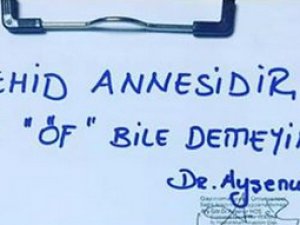 EHİD ANNESİDİR,
"ÖF" BİLE DEMEYİ
Dr. Ayşenu